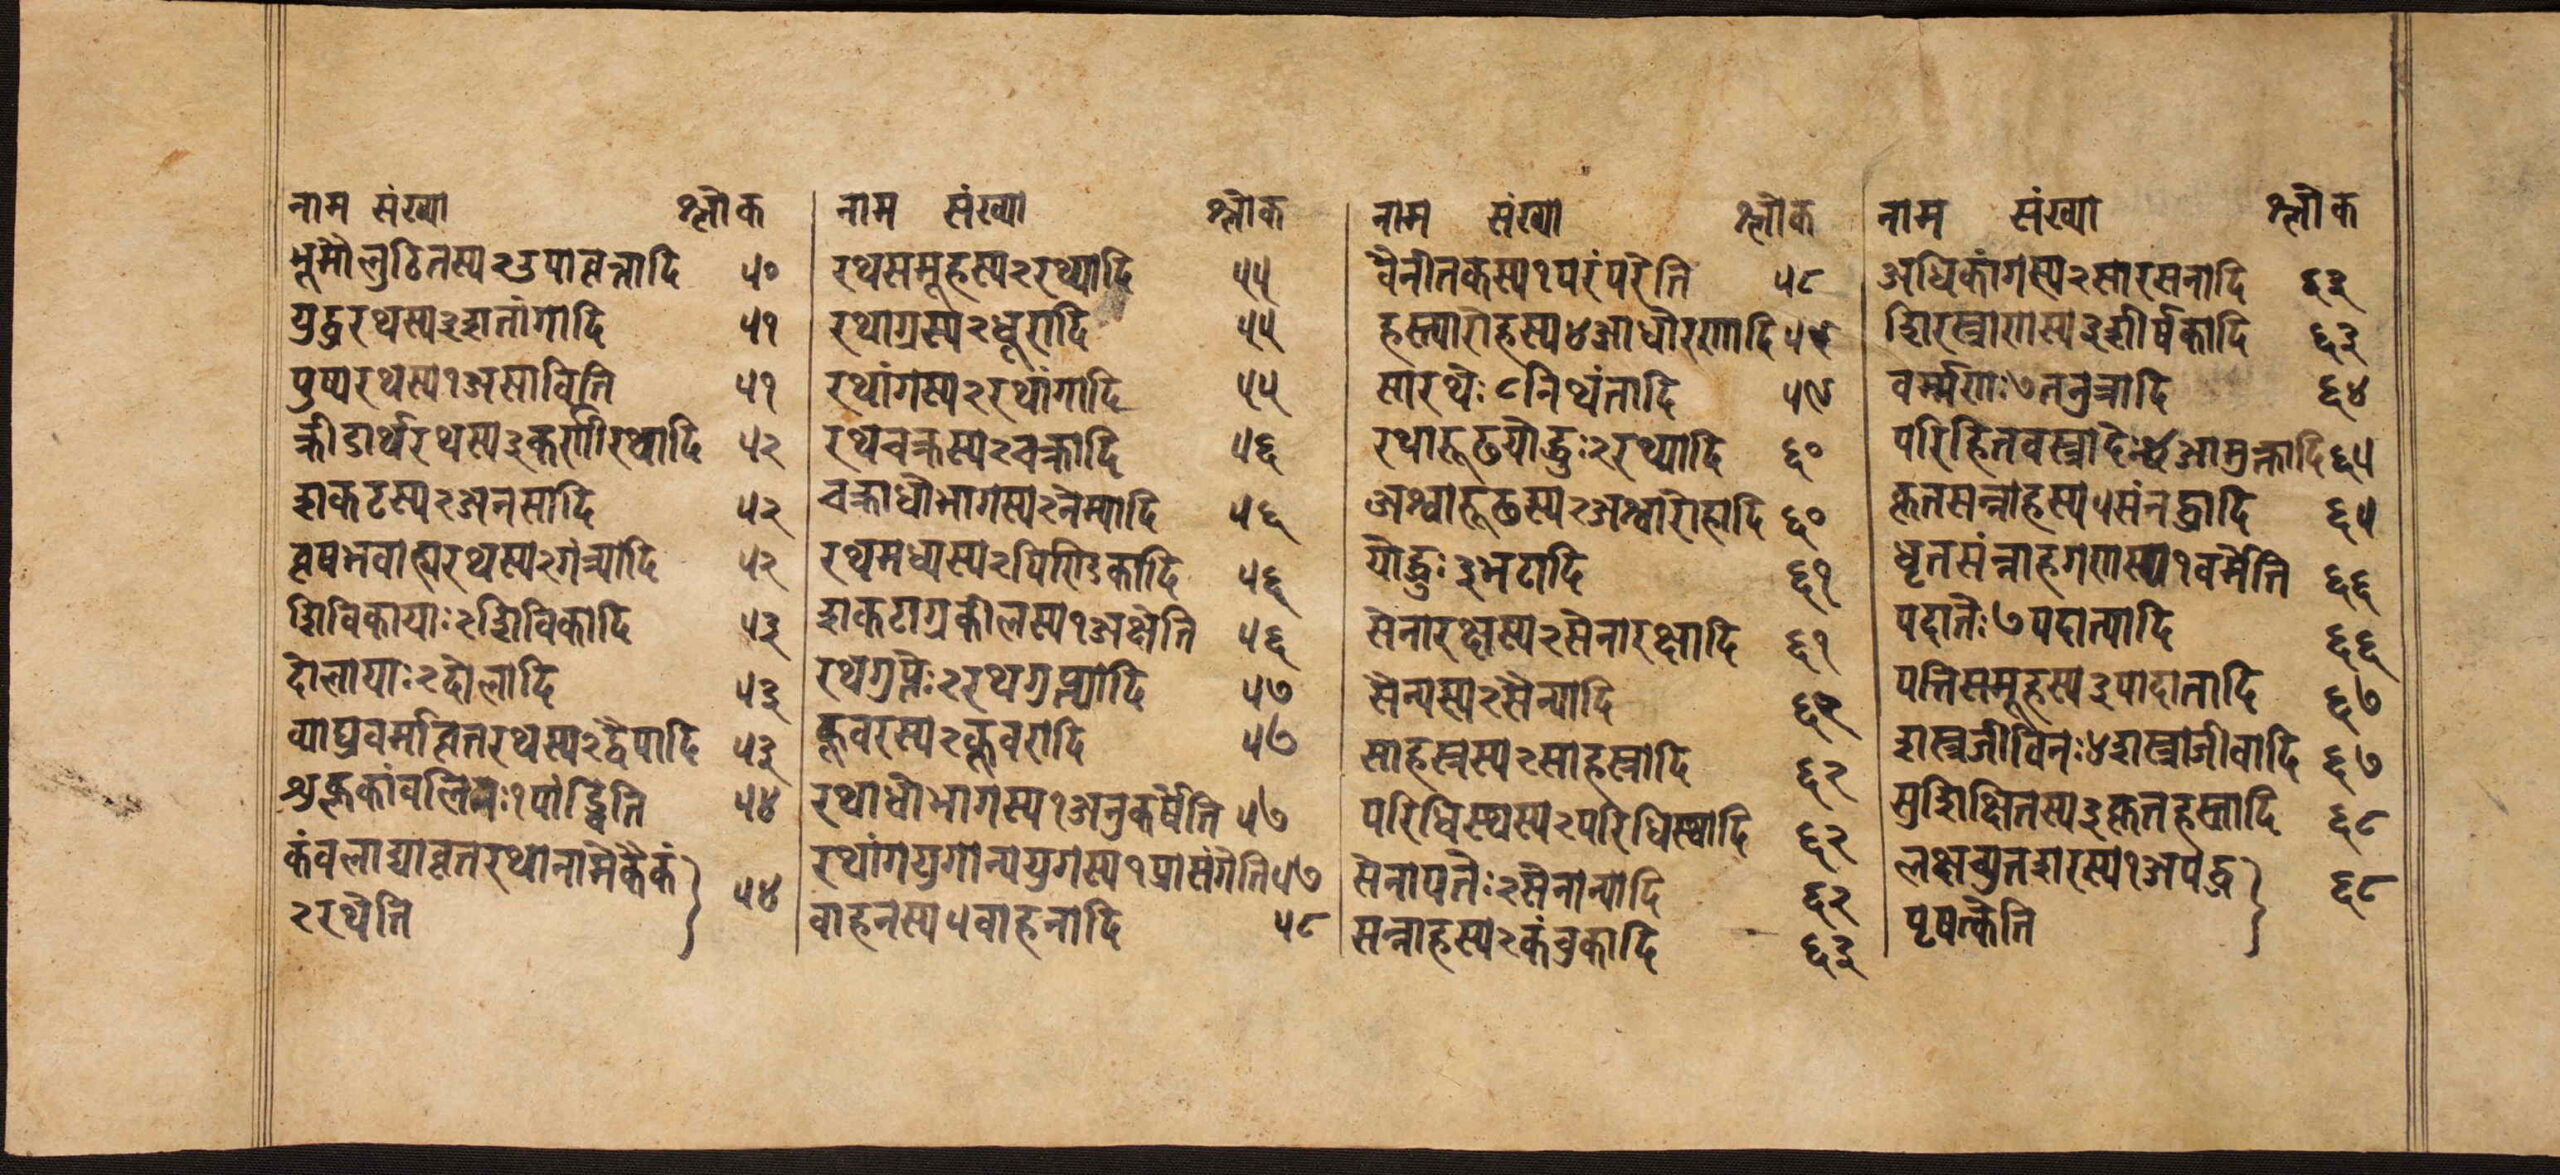 नाम संख्या श्लोक
भूमौलुठितस्य२उपावृत्तादि ५०
युद्धरथस्य३शतांगादि ५१
पुष्यरथस्य१असाविति ५१
क्रीडार्थरथस्य३कर्णीरथादि ५२
शकटस्य२अनसादि ५२
वृषभवाह्यरथस्य२गंत्र्यादि ५२
शिविकायाः२शिविकादि ५३
दोलायाः२दोलादि ५३
व्याघ्रचर्मावृतरथस्य२द्वैपादि ५३
शुक्लकांवलिनः१पांड्विति ५४
कंवलाद्यावृतरथानामेकैकं
२रथेति ५४
नाम संख्या श्लोक
रथसमूहस्य२रथ्यादि ५५
रथाग्रस्य२धूरादि ५५
रथांगस्य२रथांगादि ५५
रथचक्रस्य२चक्रादि ५६
चक्राधोभागस्य२नेम्यादि ५६
रथमध्यस्य२पिण्डिकादि ५६
शकटाग्रकीलस्य१अक्षेति ५६
रथगुप्तेः२रथगुप्त्यादि ५७
कूवरस्य२कूवरादि ५७
रथाधोभागस्य१अनुकर्षेति ५७
रथांगयुगान्ययुगस्य१प्रासंगेति ५७
वाहनस्य५वाहनादि ५८
नाम संख्या श्लोक
वैनीतकस्य१परंपरेति ५८
हस्त्यारोहस्य४आधोरणादि ५९
सारथेः८नियंतादि ५९
रथारूढयोद्धुः२रथ्यादि ६०
अश्वारूढस्य२अश्वारोहादि ६०
योद्धुः३भटादि ६१
सेनारक्षस्य२सेनारक्षादि ६१
सैन्यस्य२सैन्यादि
साहस्रस्य२साहस्रादि ६२
परिधिस्थस्य२परिधिस्थादि ६२
सेनापतेः२सेनान्यादि ६२
सन्नाहस्य२कंचुकादि ६३
नाम संख्या श्लोक
अधिकांगस्य२सारसनादि ६३
शिरस्त्राणस्य३शीर्षकादि ६३
वर्म्मणः७तनुत्रादि ६४
परिहितवस्त्रादेः४आमुक्तादि ६५
कृतसन्नाहस्य५संनद्धादि ६५
धृतसंन्नाहगणस्य१वर्मेति ६६
पदातेः७पदात्यादि ६६
पत्तिसमूहस्य३पादातादि ६७
शस्त्रजीविनः४शस्त्राजीवादि ६७
सुशिक्षितस्य३कृतहस्तादि ६८
लक्षच्युतशरस्य१अपद्ध
पृषत्केति ६८